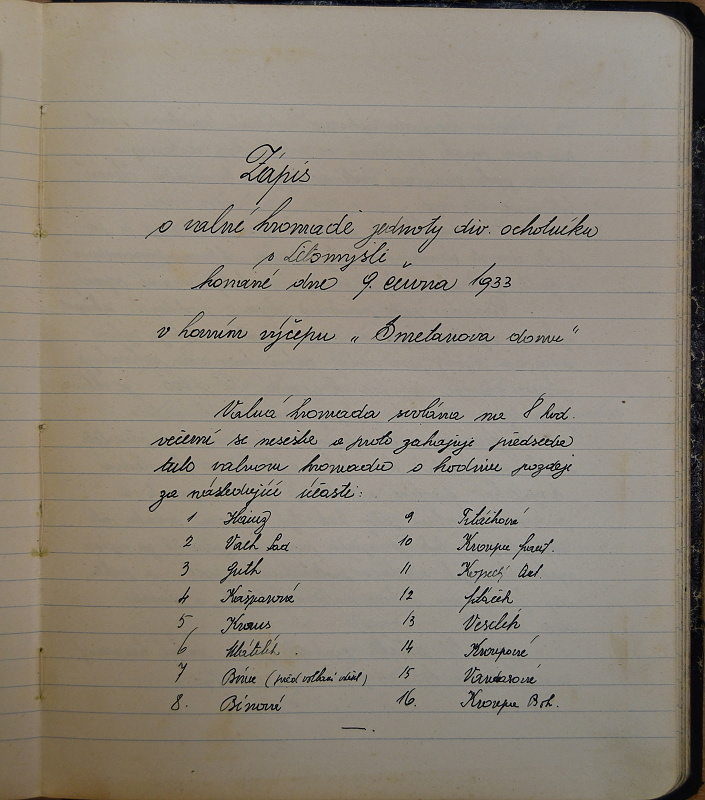 Zápis
o valné hromadě jednoty div. ochotníků
v Litomyšli
konané dne 9. června 1933
v horním výčepu „Smetanova domu“
Valná hromada svolána na 8 hod.
večerní se nesešla a proto zahajuje předseda
tuto valnou hromadu o hodinu později
za následující účasti:
1
9
2 Vach Lad.
10 Kroupa
3 Guth
11 Kopecký Ant.
4 Kašparová
12 Ptáček
5 Kraus
13 Veselík
6
14 Kroupová
7 Bína (před volbami odešel)
15
8. Bínová
16. Kroupa Boh.